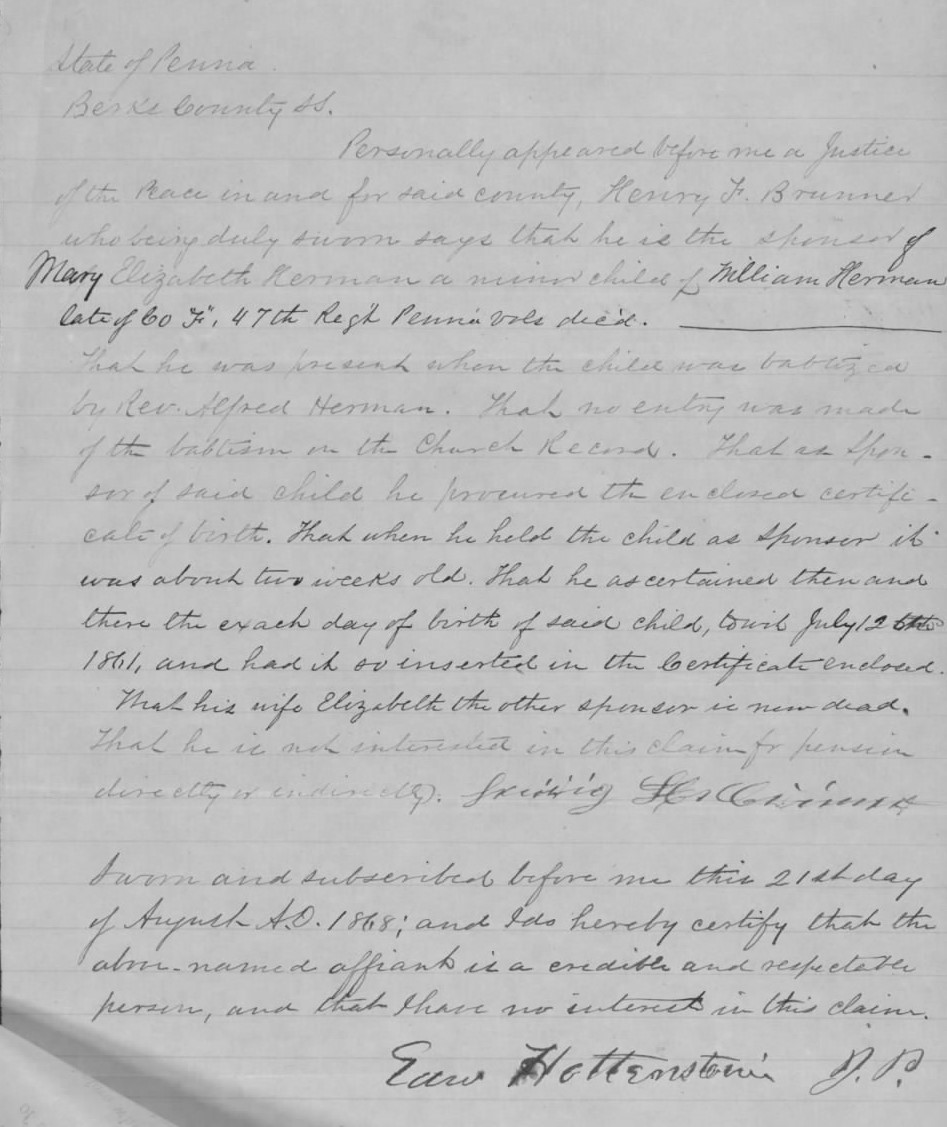 State of Penna
Berks County SS.
Personally appeared before me a Justice
of the Peace in and for said county, Henry F. Brunner
who being duly sworn says that he is the sponsor of
Mary Elizabeth Herman a minor child of William Herman
late of Co "F", 47th Reg't Penna vols dec'd.
That he was present when the child was babtized
by Rev. Alfred Herman. That no entry was made
of the babtism on the Church Record. That as Spon-
sor of said child he procured the enclosed certifi-
cate of birth. That when he held the child as Sponsor it
was about two weeks old. That he ascertained then and
there the exact day of birth of said child, to wit July 12
1861, and had it so inserted in the Certificate enclosed.
That his wife Elizabeth the other sponsor is now dead.
That he is not interested in this claim for pension
directly or indirectly.
Sworn and subscribed before me this 21st day
of August A.D. 1868; and I do hereby certify that the
above-named affiant is a credible and respectable
person, and that I have no interest in this claim.
Edw Hottenstein J. P.